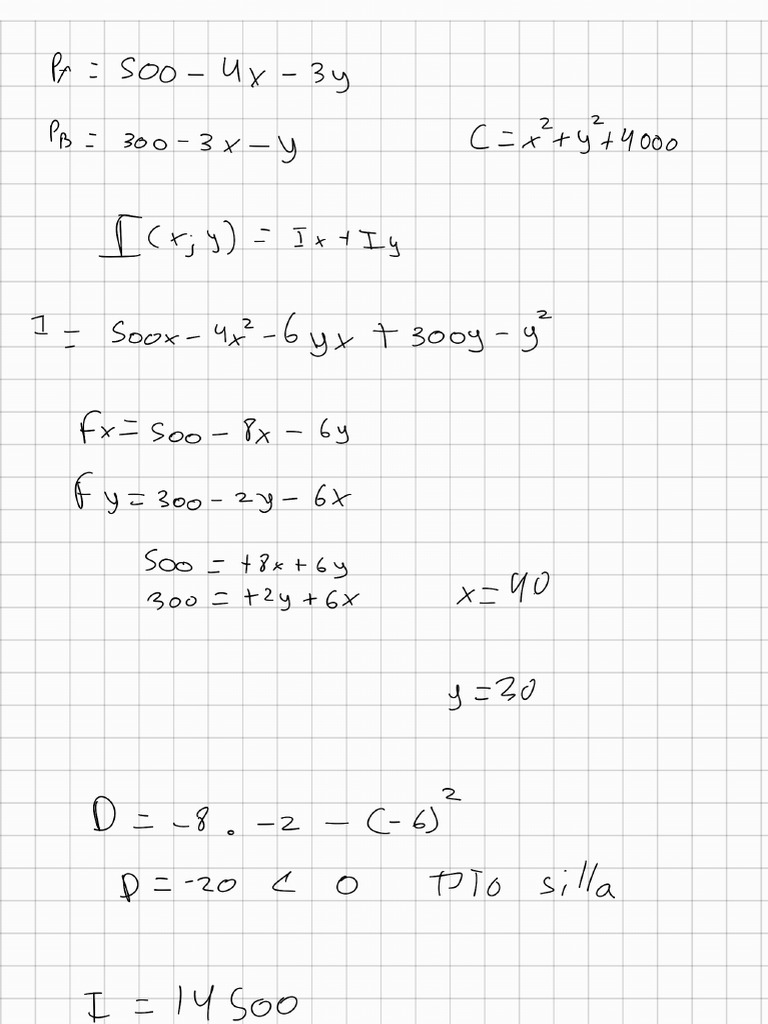 P_A = 500 - 4x - 3y
P_B = 300 - 3x - y
C = x² + y² + 4000
I(x; y) = Ix + Iy
I = 500x - 4x² - 6yx + 300y - y²
fx = 500 - 8x - 6y
fy = 300 - 2y - 6x
500 = +8x + 6y
300 = +2y + 6x
x = 40
y = 30
D = -8 . -2 - (-6)²
D = -20 < 0 PTO silla
I = 14500